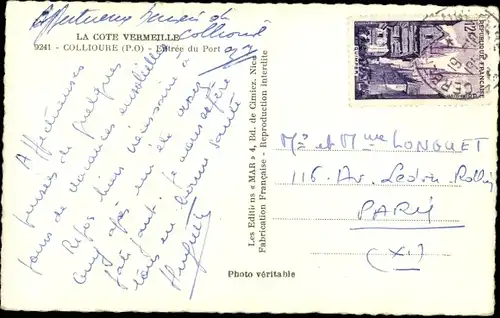 Affectueux
Collioure
LA COTE VERMEILLE
9241 - COLLIOURE (P.O) - Entrée du Port
Affectueuses
pensées de quelques
jours de vacances ensoleillées
Repos bien nécessaire à
Cany après un été assez
fatigant. Je vous espère
tous en bonne santé
Huguette
Les Editions « MAR » 4, Ed. de Cimiez, Nice
Fabrication Française - Reproduction interdite
Photo véritable
REPUBLIQUE FRANÇAISE
Mr et Mme LONGUET
116. Av. Ledru-Rollin
PARIS
(XI)